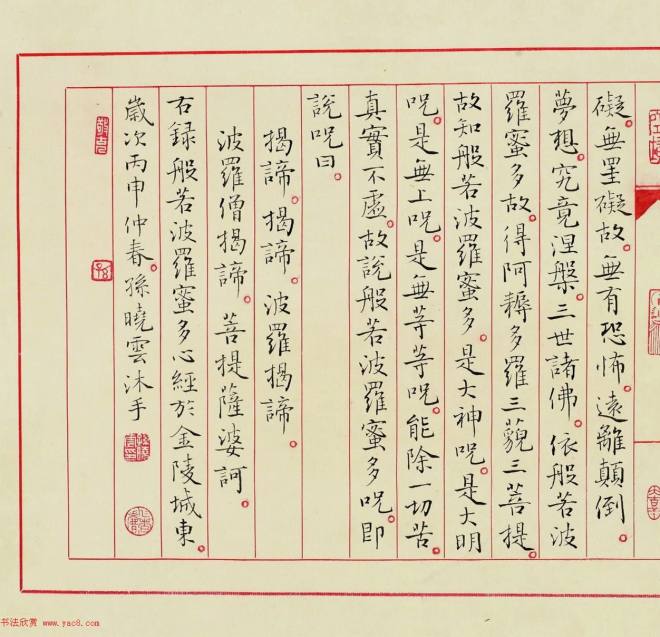 礙。無罣礙故。無有恐怖。遠離顛倒。
夢想。究竟涅槃。三世諸佛。依般若波
羅蜜多故。得阿耨多羅三藐三菩提。
故知般若波羅蜜多。是大神咒。是大明
咒。是無上咒。是無等等咒。能除一切苦。
真實不虛。故說般若波羅蜜多咒。即
說咒曰。
揭諦。揭諦。波羅揭諦。
波羅僧揭諦。菩提薩婆訶。
右録般若波羅蜜多心經於金陵城東。
歲次丙申仲春。孫曉雲沐手
书法欣赏 www.yac8.com